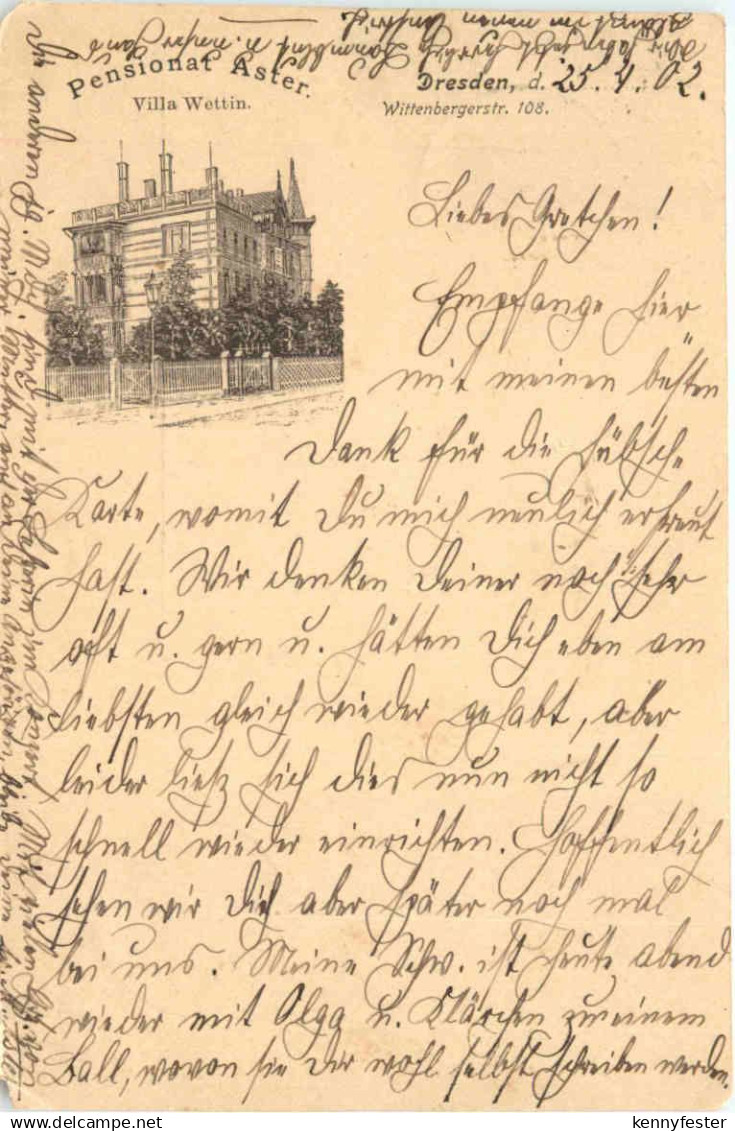 Pensionat Aster.
Villa Wettin.
Dresden, d. 25. 4. 02.
Wittenbergerstr. 108.
Liebes Gretchen!
Empfange hier
mit meinen besten
Dank für die hübsche
Karte, womit Du mich neulich erfreut
hast. Wir denken Deiner noch sehr
oft u. gern u. hätten Dich eben am
liebsten gleich wieder gehabt, aber
leider ließ sich dies nun nicht so
schnell wieder einrichten. Hoffentlich
sehen wir Dich aber später noch mal
bei uns. Meine Schw. ist heute abend
wieder mit Olga u. Klärchen zu einem
Ball, wovon sie Dir wohl selbst schreiben werden.
Die anderen jg. Mdch. sind mit
im Konzert. Mit vielen Gr. von
meiner Mutter und an Deine Angehörigen